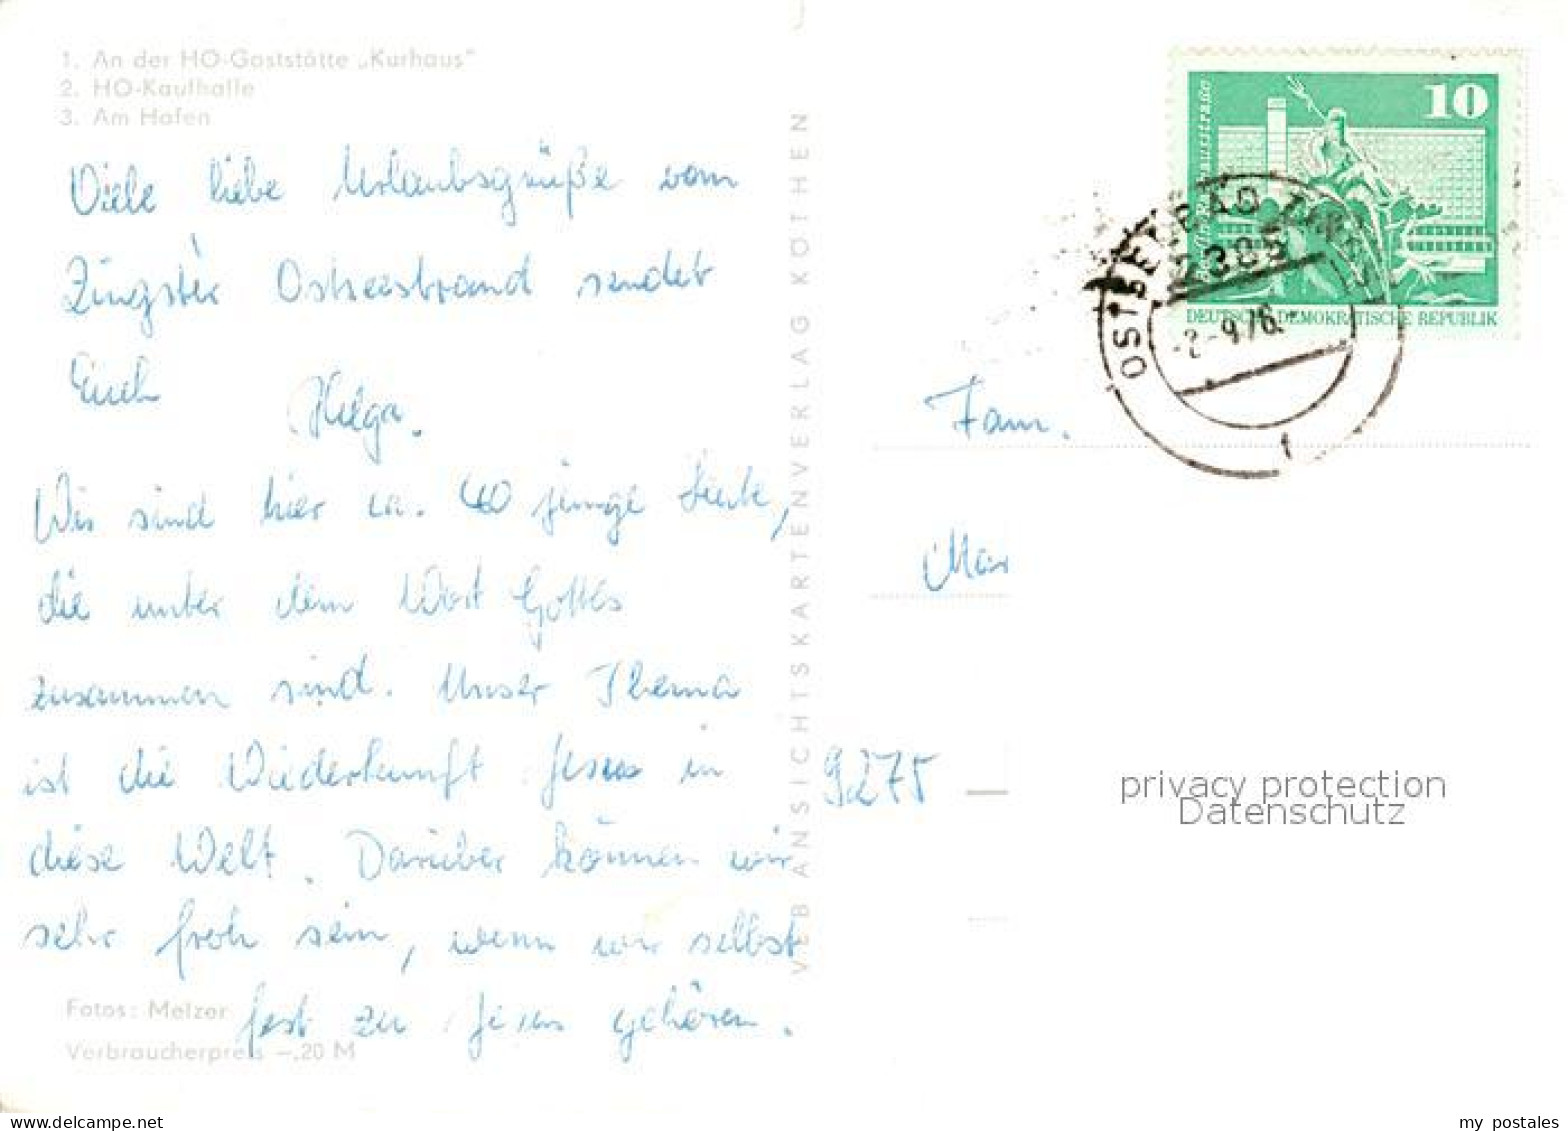 1. An der HO-Gaststätte „Kurhaus"
2. HO-Kaufhalle
3. Am Hafen
Viele liebe Urlaubsgrüße vom
Zingster Ostseestrand sendet
Euch Helga.
Wir sind hier ca. 40 junge Leute,
die unter dem Wort Gottes
zusammen sind. Unser Thema
ist die Wiederkunft Jesus in
diese Welt. Darüber können wir
sehr froh sein, wenn wir selbst
fest zu Jesus gehören.
Fotos: Melzer
Verbraucherpreis -,20 M
VEB ANSICHTSKARTENVERLAG KÖTHEN
10
DEUTSCHE DEMOKRATISCHE REPUBLIK
OSTSEEBAD
2385
-9.76
Fam.
9275
privacy protection
Datenschutz
my postales